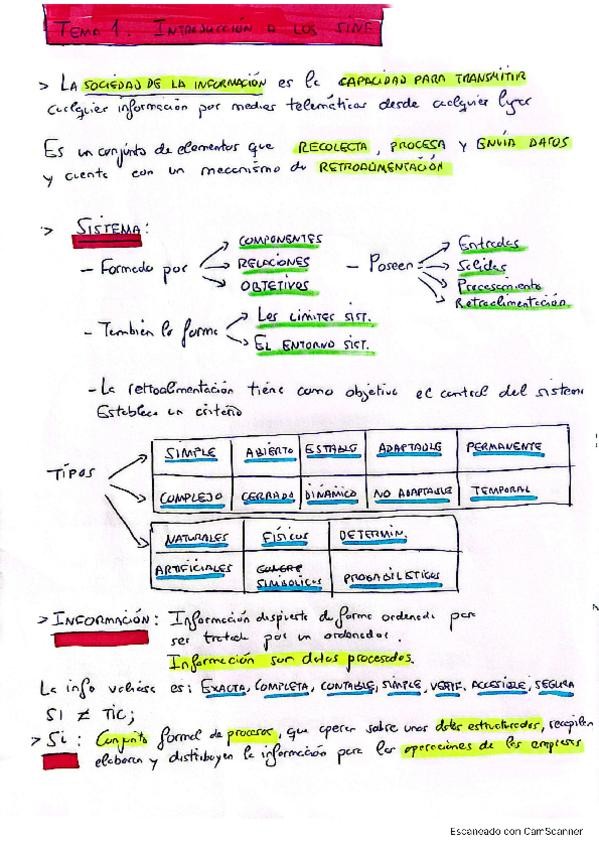 TEMA 1. INTRODUCCIÓN A LOS SINF
> LA SOCIEDAD DE LA INFORMACIÓN es la CAPACIDAD PARA TRANSMITIR
cualquier información por medios telemáticos desde cualquier lugar
Es un conjunto de elementos que RECOLECTA, PROCESA y ENVÍA DATOS
y cuenta con un mecanismo de RETROALIMENTACIÓN
> SISTEMA:
- Formado por
COMPONENTES
RELACIONES
OBJETIVOS
- Poseen
Entradas
Salidas
Procesamiento
Retroalimentación
- También lo forma
Los LÍMITES SIST.
EL ENTORNO SIST.
- La retroalimentación tiene como objetivo el control del sistema
Establece un criterio
TIPOS
SIMPLE ABIERTO ESTABLE ADAPTABLE PERMANENTE
COMPLEJO CERRADO DINÁMICO NO ADAPTABLE TEMPORAL
NATURALES FÍSICOS DETERMIN.
ARTIFICIALES SIMBÓLICOS PROBABILÍSTICOS
> INFORMACIÓN: Información dispuesta de forma ordenada para
ser tratada por un ordenador.
Información son datos procesados.
La info valiosa es: EXACTA, COMPLETA, CONTABLE, SIMPLE, VERIF, ACCESIBLE, SEGURA
SI ≠ TIC;
> SI: Conjunto formal de procesos, que operan sobre unos datos estructurados, recopilan
elaboran y distribuyen la información para las operaciones de las empresas
Escaneado con CamScanner